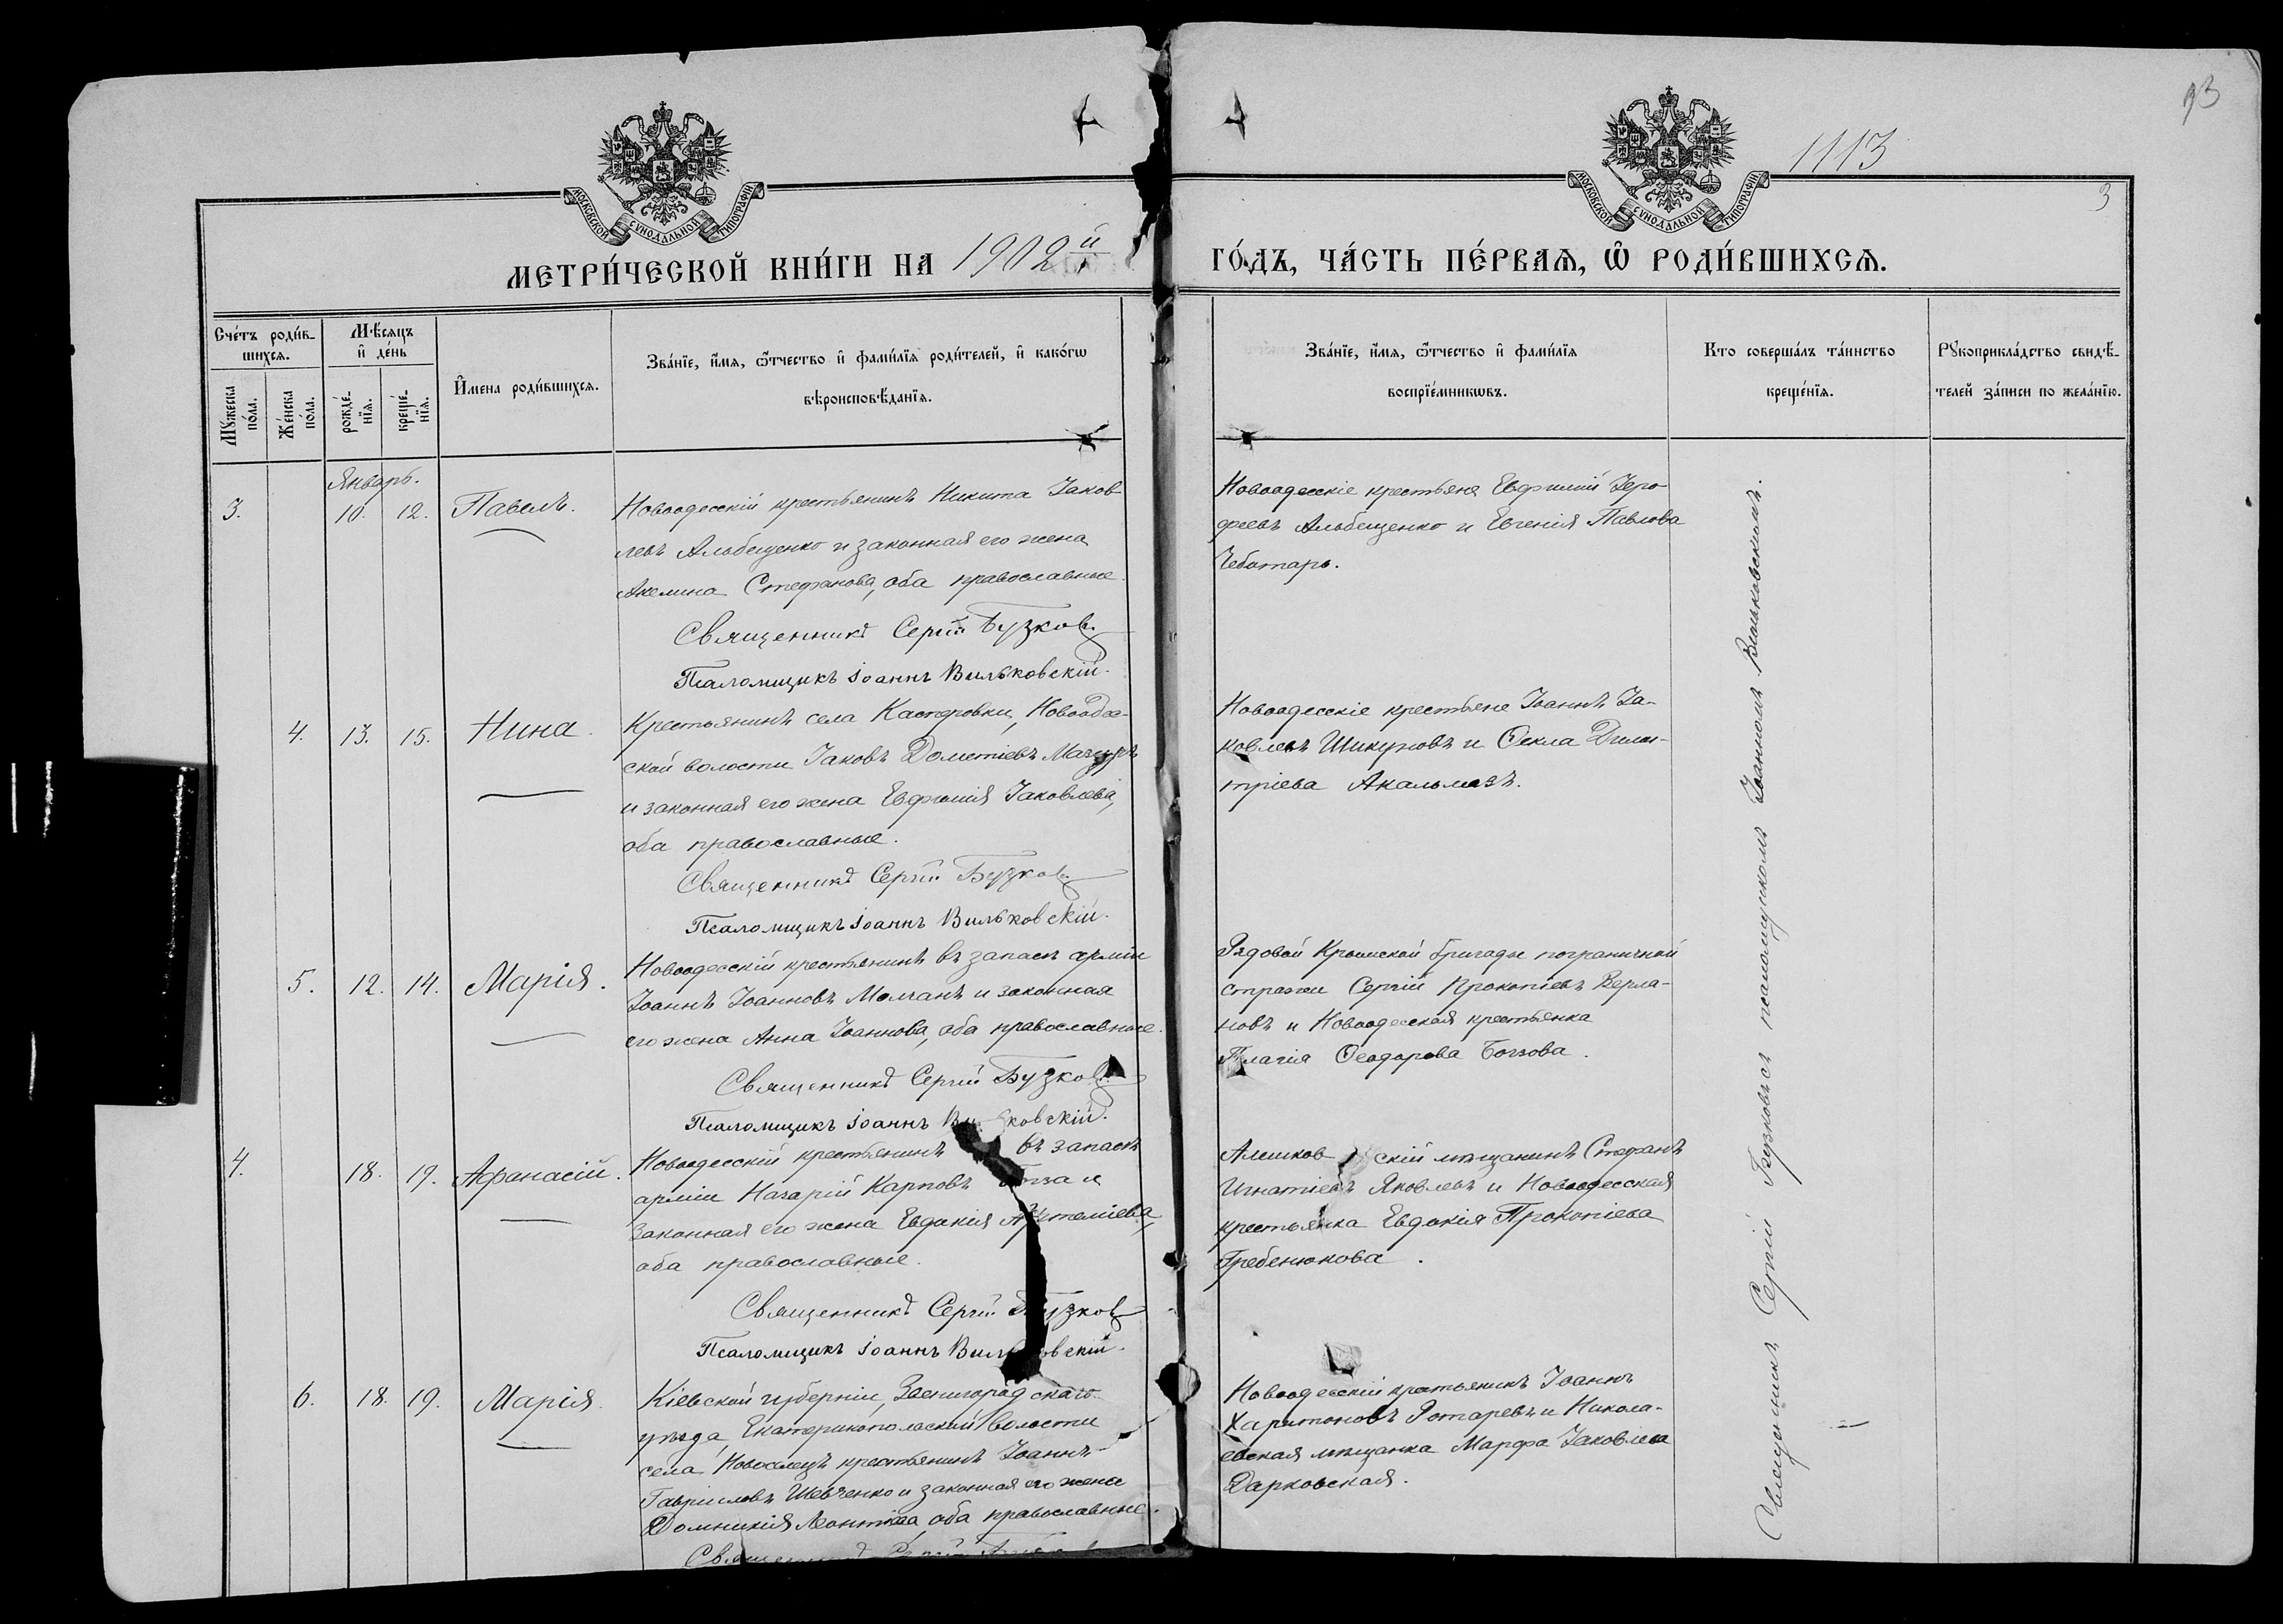 93
1113
3
МОСКОВСКОЙ СѴНОДАЛЬНОЙ ТИПОГРАФІИ
МОСКОВСКОЙ СѴНОДАЛЬНОЙ ТИПОГРАФІИ
МЕТРИ́ЧЕСКОЙ КНИ́ГИ НА 1902й
ГО́ДЪ, ЧА́СТЬ ПЕ́РВАѦ, Ѡ҆ РОДИ́ВШИХСѦ.
Сче́тъ роди́в-
шихсѧ.
Мꙋ́жеска по́ла.
Же́нска по́ла.
Мѣ́сѧцъ
и҆ де́нь
рожде́-
нїѧ.
креще́-
нїѧ.
И҆мена роди́вшихсѧ.
Зва́нїе, и҆́мѧ, ѻ҆́тчество и҆ фами́лїѧ роди́телей, и҆ како́гѡ
вѣроисповѣ́данїѧ.
Зва́нїе, и҆́мѧ, ѻ҆́тчество и҆ фами́лїѧ
воспрїе́мникѡвъ.
Кто соверша́лъ та́инство
креще́нїѧ.
Рꙋкоприкла́дство свидѣ́-
телей за́писи по жела́нїю.
Январь.
3. 10. 12. Павелъ.
Новоодесскій крестьянинъ Никита Іаков-
левъ Альбещенко и законная его жена
Акелина Стефанова, оба православные.
Священникъ Сергій Бузков
Псаломщикъ Іоаннъ Вильковскій.
Новоодесскіе крестьяне Евфимій Іеро-
феевъ Альбещенко и Евгенія Павлова
Чеботарь.
4. 13. 15. Нина.
Крестьянинъ села Касперовки, Новоодес-
ской волости Іаковъ Дометіевъ Мазуръ
и законная его жена Евфимія Іаковлева,
оба православные.
Священникъ Сергій Бузков
Псаломщикъ Іоаннъ Вильковскій.
Новоодесскіе крестьяне Іоаннъ Іа-
ковлевъ Шикуновъ и Ѳекла Дими-
тріева Акальмазъ.
5. 12. 14. Марія.
Новоодесскій крестьянинъ въ запасѣ арміи
Іоаннъ Іоанновъ Молчанъ и законная
его жена Анна Іоаннова, оба православные.
Священникъ Сергій Бузков
Псаломщикъ Іоаннъ Вильковскій.
Рядовой Крымской бригады пограничной
стражи Сергій Прокопіевъ Верла-
новъ и Новоодесская крестьянка
Пелагія Ѳеодорова Богзова.
4. 18. 19. Афанасій.
Новоодесскій крестьянинъ въ запасѣ
арміи Назарій Карповъ и
законная его жена Евдокія Артеміева,
оба православные.
Священникъ Сергій Бузков
Псаломщикъ Іоаннъ Вильковскій.
Алешковскій мѣщанинъ Стефанъ
Игнатіевъ Яковлевъ и Новоодесская
крестьянка Евдокія Прокопіева
Гребенюкова.
6. 18. 19. Марія.
Кіевской губерніи, Звенигородскаго
уѣзда, Екатеринопольской волости
села Новоселицъ крестьянинъ Іоаннъ
Гавріиловъ Шевченко и законная его жена
Домникія Леонтіева, оба православные.
Священникъ Сергій
Новоодесскій крестьянинъ Іоаннъ
Харитоновъ Ротаревъ и Никола-
евская мѣщанка Марфа Іаковлева
Дарковская.
Священникъ Сергій Бузковъ съ псаломщикомъ Іоанномъ Вильковскимъ.